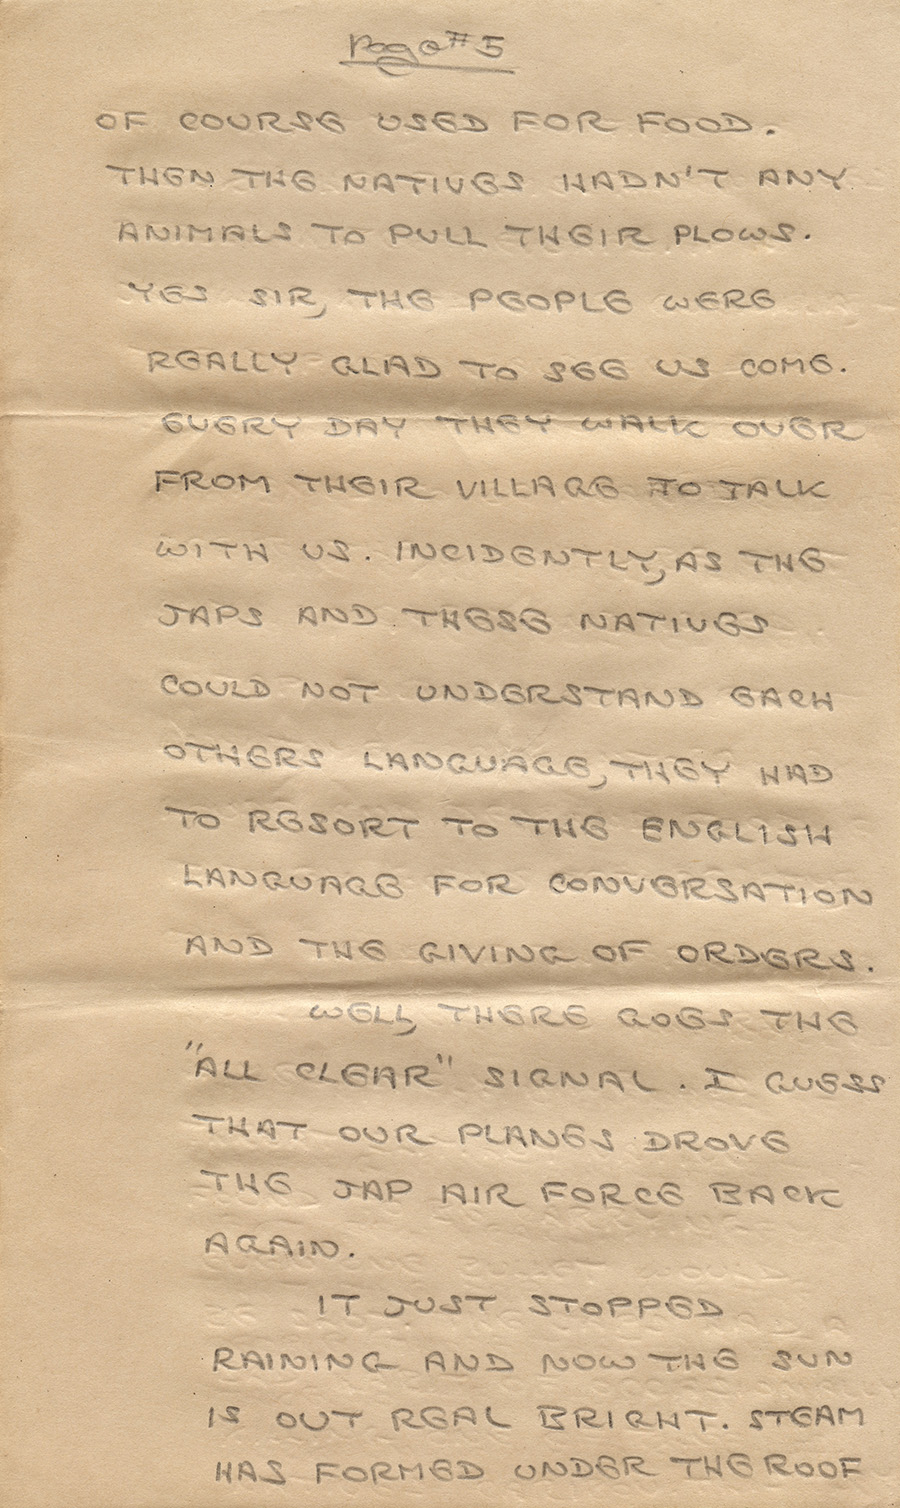 Page #5
OF COURSE USED FOR FOOD.
THEN THE NATIVES HADN'T ANY
ANIMALS TO PULL THEIR PLOWS.
YES SIR, THE PEOPLE WERE
REALLY GLAD TO SEE US COME.
EVERY DAY THEY WALK OVER
FROM THEIR VILLAGE TO TALK
WITH US. INCIDENTLY, AS THE
JAPS AND THESE NATIVES
COULD NOT UNDERSTAND EACH
OTHERS LANGUAGE, THEY HAD
TO RESORT TO THE ENGLISH
LANGUAGE FOR CONVERSATION
AND THE GIVING OF ORDERS.
WELL, THERE GOES THE
"ALL CLEAR" SIGNAL. I GUESS
THAT OUR PLANES DROVE
THE JAP AIR FORCE BACK
AGAIN.
IT JUST STOPPED
RAINING AND NOW THE SUN
IS OUT REAL BRIGHT. STEAM
HAS FORMED UNDER THE ROOF